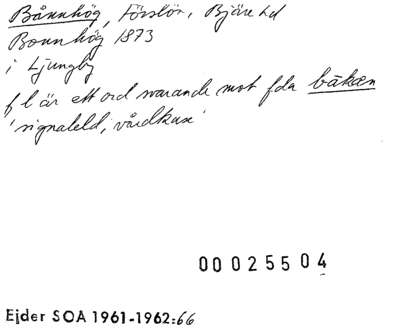 Bånnhög, Förslöv, Bjäre hd
Bonnhög 1873
i Ljungby
f l är ett ord svarande mot fda bākæn
'signaleld, vårdkase'
00025504
Ejder SOA 1961-1962:66